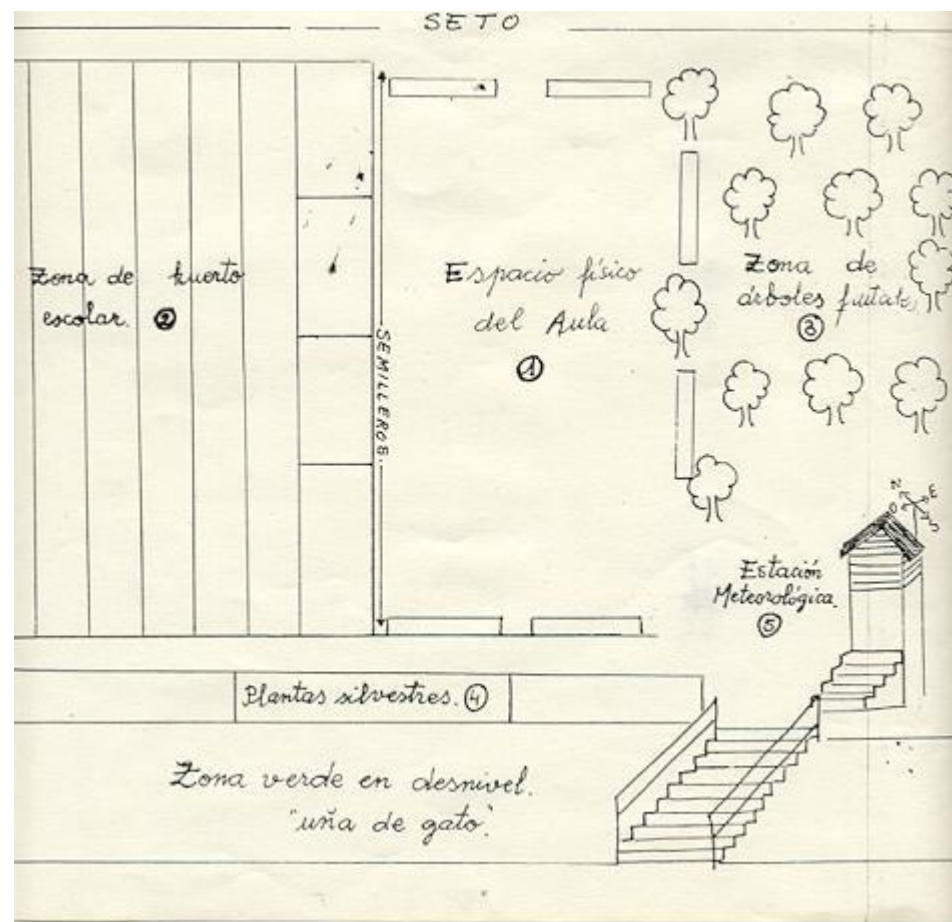 SETO
Zona de huerto
escolar. 2
SEMILLEROS.
Espacio físico
del Aula
1
Zona de
árboles frutal
3
N
E
O
S
Estación
Meteorológica.
5
Plantas silvestres. 4
Zona verde en desnivel.
"uña de gato".